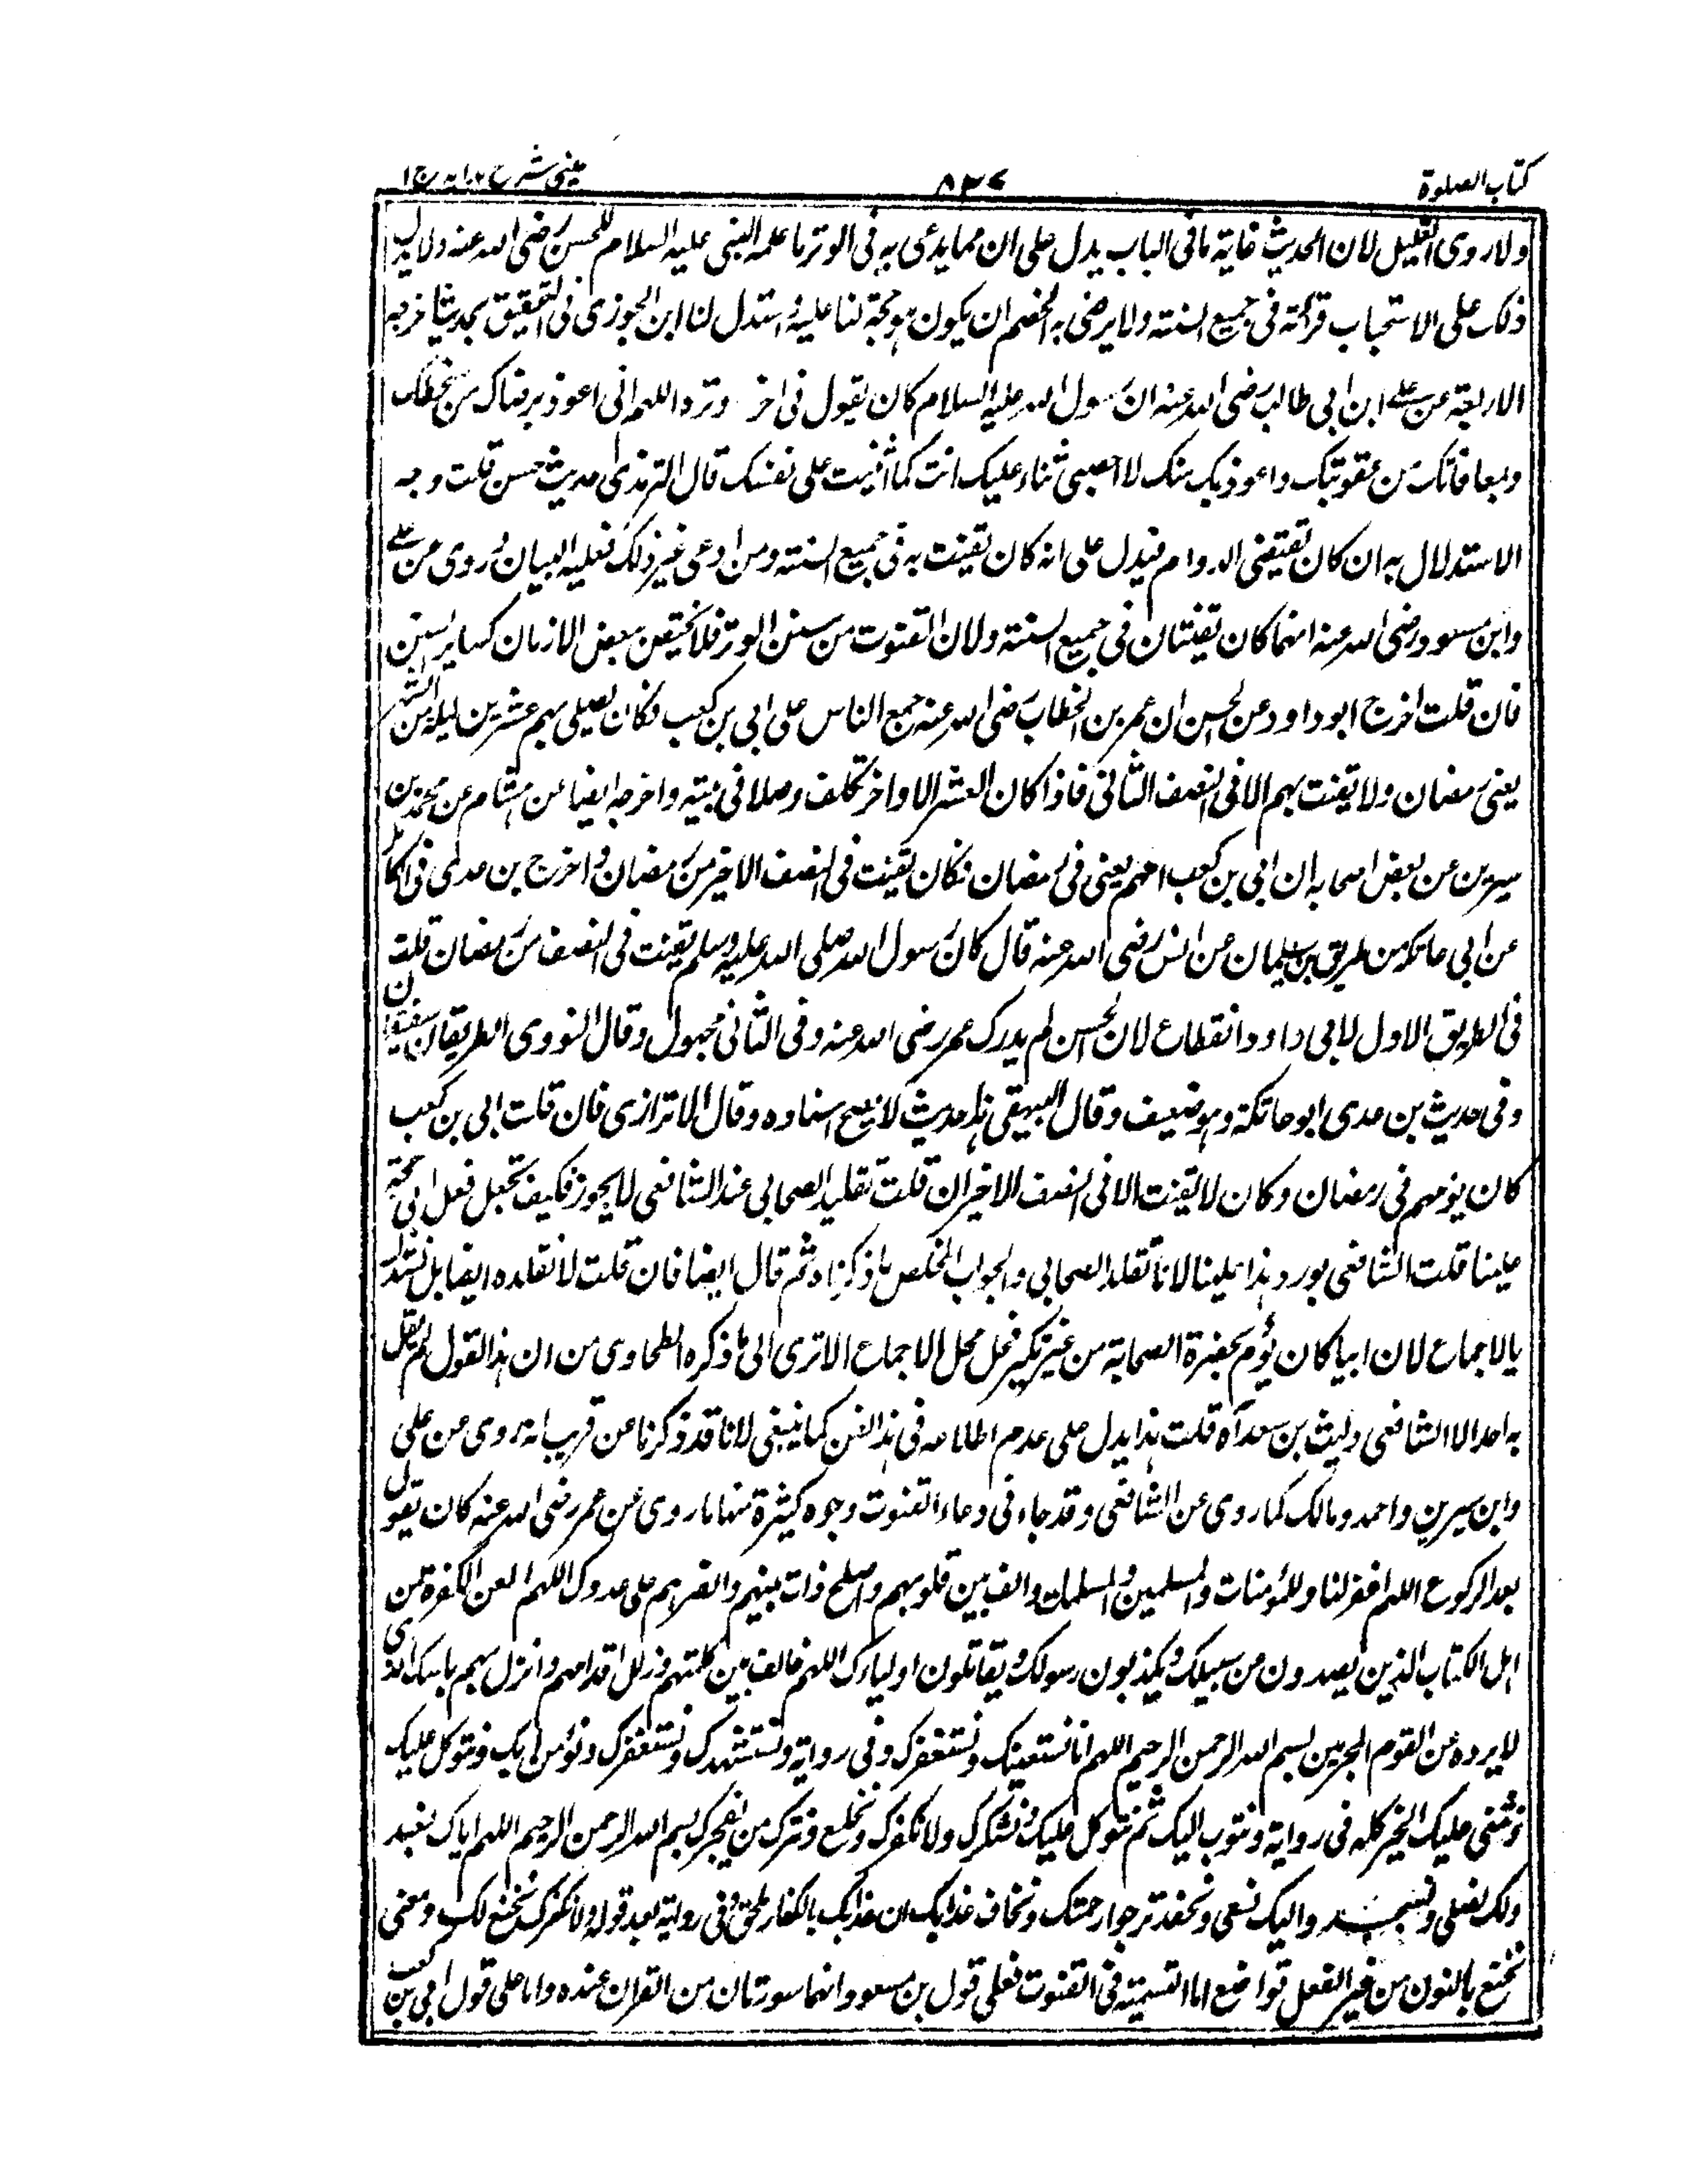 كتاب الصلوة
۸۲۷
عينى شرح هدايه ج ۱
ولا روى الغليل لان الحديث غاية ما فى الباب يدل على ان مما يدعى به فى الوتر ما علمه النبى عليه السلام للحسن رضى الله عنه ولا يدل
ذلك على الاستحباب قراءته فى جميع السنة ولا يرضى به الخصم ان يكون هو حجة لنا عليه واستدل لنا ابن الجوزى فى التحقيق بحديث اخرجه
الاربعة عن على ابن ابى طالب رضى الله عنه ان رسول الله عليه السلام كان يقول فى اخر وتره اللهم انى اعوذ برضاك من سخطك
وبمعافاتك من عقوبتك واعوذ بك منك لا احصى ثناء عليك انت كما اثنيت على نفسك قال الترمذى حديث حسن قلت وجه
الاستدلال به ان كان تقتضى الدوام فيدل على انه كان يقنت به فى جميع السنة ومن ادعى غير ذلك فعليه البيان وروى عن على
وابن مسعود رضى الله عنه انهما كان يقنتان فى جميع السنة ولان القنوت من سنن الوتر فلا يختص ببعض الازمان كساير السنن
فان قلت اخرج ابو داود عن الحسن ان عمر بن الخطاب رضى الله عنه جمع الناس على ابى بن كعب فكان يصلى بهم عشرين ليلة من الشهر
يعنى رمضان ولا يقنت بهم الا فى النصف الثانى فاذا كان العشر الاواخر تخلف وصلا فى بيته واخرجه ايضا عن هشام عن محمد بن
سيرين عن بعض اصحابه ان ابى بن كعب امهم يعنى فى رمضان فكان يقنت فى النصف الاخير من رمضان واخرج بن عدى فى الكامل
عن ابى عاتكة من طريق بن سليمان عن انس رضى الله عنه قال كان رسول الله صلى الله عليه وسلم يقنت فى النصف من رمضان قلت
فى الطريق الاول لابى داود انقطاع لان الحسن لم يدرك عمر رضى الله عنه وفى الثانى مجهول وقال النووى الطريقان ضعيفان
وفى حديث بن عدى ابو عاتكة وهو ضعيف وقال البيهقى هذا حديث لا يصح اسناده وقال الاترازى فان قلت ابى بن كعب
كان يؤمهم فى رمضان وكان لا يقنت الا فى النصف الاخير ان قلت تقليد الصحابى عند الشافعى لا يجوز فكيف تجعل فعل ابى حجة
علينا قلت الشافعى يورد هذا علينا لانا نقلد الصحابى والجواب المخلص ما ذكرناه ثم قال ايضا فان قلت لا نقلده ايضا بل نستدل
بالاجماع لان ابيا كان يؤم بحضرة الصحابة من غير نكير فحل محل الاجماع الا ترى الى ما ذكره الطحاوى من ان هذا القول لم يقل
به احد الا الشافعى وليث بن سعد اه قلت هذا يدل على عدم اطلاعه فى هذا الفن كما ينبغى لانا قد ذكرنا عن قريب انه روى عن على
وابن سيرين واحمد ومالك كما روى عن الشافعى وقد جاء فى دعاء القنوت وجوه كثيرة منها ما روى عن عمر رضى الله عنه كان يقول
بعد الركوع اللهم اغفر لنا وللمؤمنات والمسلمين والمسلمات والف بين قلوبهم واصلح ذات بينهم وانصرهم على عدوك اللهم العن الكفرة من
اهل الكتاب الذين يصدون عن سبيلك ويكذبون رسولك ويقاتلون اولياءك اللهم خالف بين كلمتهم وزلزل اقدامهم وانزل بهم باسك الذى
لا يرده عن القوم المجرمين بسم الله الرحمن الرحيم اللهم انا نستعينك ونستغفرك وفى رواية ونستشهدك ونستغفرك ونؤمن بك ونتوكل عليك
ونثنى عليك الخير كله فى رواية ونتوب اليك ثم نتوكل عليك ونشكرك ولا نكفرك ونخلع ونترك من يفجرك بسم الله الرحمن الرحيم اللهم اياك نعبد
ولك نصلى ونسجد واليك نسعى ونحفد نرجوا رحمتك ونخاف عذابك ان عذابك بالكفار ملحق وفى رواية بعد قوله ولا نكفرك نخنع لك ومعنى
نخنع بالنون من غير الفعل تواضع اما التسمية فى القنوت فعلى قول بن مسعود انهما سورتان من القران عنده واما على قول ابى بن كعب